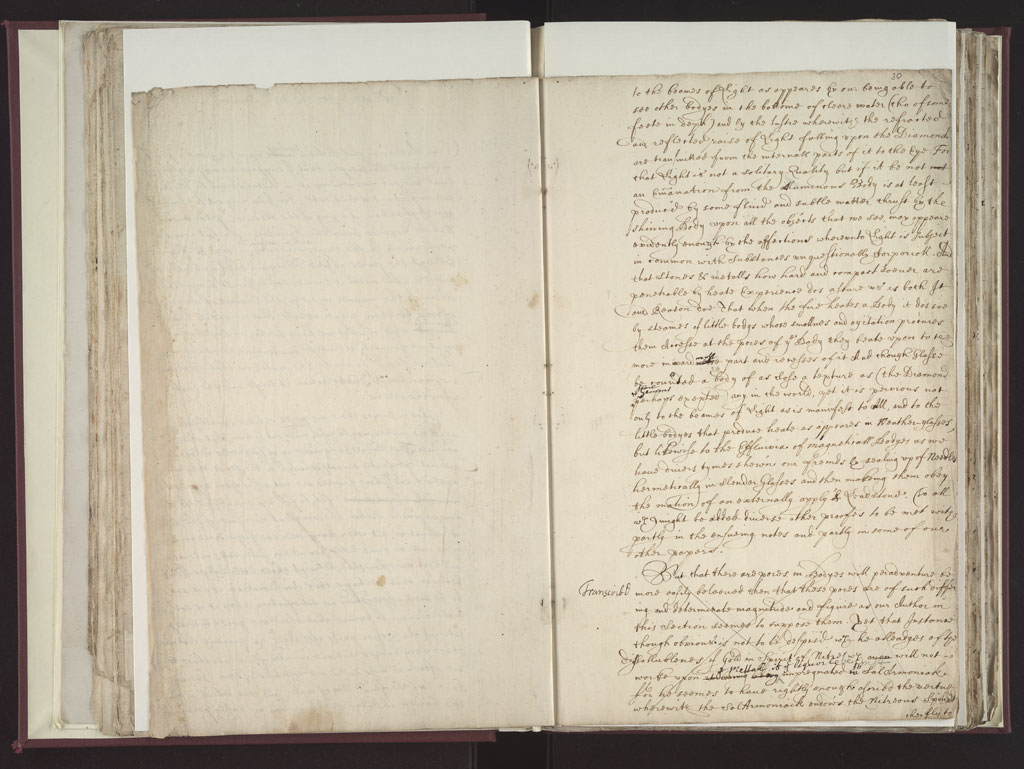 30
to the beames of Light as appeares by our being able to
see other bodyes in the bottome of cleere water (tho of some
feete in depth) and by the lustre wherewith the refracted
and reflected raise of Light falling upon the Diamond
are transmitted from the internall parts of it to the Eye. For
that Light is not a solitary Quality but if it be not
an Emanation from the Luminous Body is at least
produc'd by some fluid and subtle matter thrust by the
shining Body upon all the objects that we see, may appeare
evidently enough by the affections whereunto Light is subject
in Common with Substances unquestionally Corporeall. And
that Stones & metalls how hard and compact soever are
penetrable by heate Experience dos assure us is both
and Reason doe That when the fire heates a Body it dos soe
by steames of little bodys whose smallnes and agitation procures
them Accesse at the pores of ye Body they beate upon to the
more inward most part and recesses of it And though Glasse
be counted a body of as close a texture as (the Diamond
perhaps excepted) any in the world, yet it is pervious not
only to the beames of Light as is manifest to all, and to the
little bodyes that produce heate as appeares in Weather-glasses
but likewise to the Effluvia of magneticall Bodyes as we
have divers tymes shewn our freinds by sealing up of Needles
hermetically in slender Glasses and then making them obey
the motion of an externally apply'd Loadstone. (To all
wch might be added diverse other proofes to be met with
partly in the ensueing notes and partly in some of our
other papers.
But that there are pores in Bodyes will peradventure be
Transcrib'd
more easily beleeved then that these pores are of such differ
ing and determinate magnitudes and figure as our Author in
this Section seemes to suppose them. Yet that Instance
though obvious is not to be despised wch he alleadges of the
dissolublenes of Gold in Spirit of Nitre wch will not
worke upon Mettall if it unimpregnated Sal Armoniack
for he seemes to have rightly enough ascribd the vertue
wherewith the Sal Armoniack endows the Nitreous Spirit
cheifly to